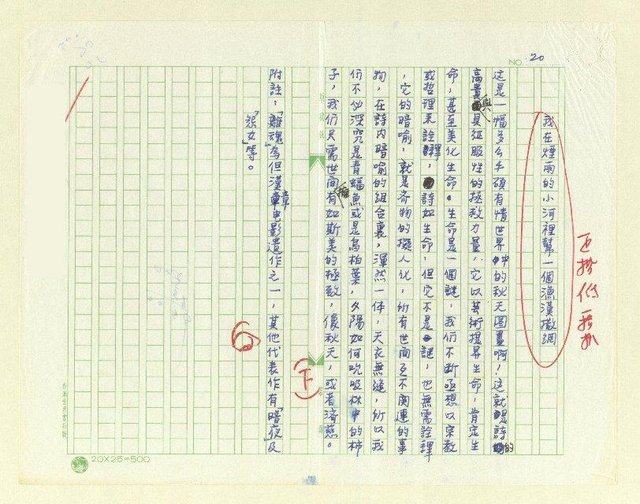 NO. 20
我在煙雨的小河裡幫一個漁漢撒網
這是一幅多么手碩有情世界中的秋天圖畫啊！這就是詩的
高貴與具征服性的拯救力量，它以藝術提昇生命，肯定生
命，甚至美化生命。生命是一個謎，我們不斷亟想以宗教
或哲理來詮釋，詩如生命，但它不是謎，也無需詮釋
，它的暗喻，就是奇物的擬人化，所有世間互不關連的事
物，在詩內暗喻的組合裏，渾然一体，天衣無縫，所以我
們不必深究是青鱸魚或是烏桕葉，夕陽如何吮吸林中的柿
子，我們只需世間有如斯美的極致，像秋天，或者濟慈。
附註：「離魂」為但漢章電影遺作之一，其他代表作有「暗夜」及
「怨女」等。
6
(下)
20X25=500